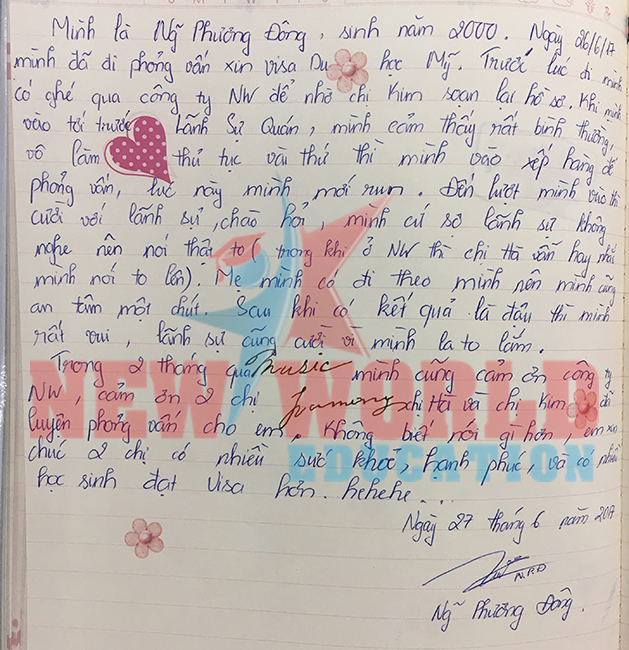 Mình là Ngũ Phương Đông, sinh năm 2000. Ngày 26/6/17
mình đã đi phỏng vấn xin visa Du học Mỹ. Trước lúc đi mình
có ghé qua công ty NW để nhờ chị Kim soạn lại hồ sơ. Khi mình
vào tới trước Lãnh Sự Quán, mình cảm thấy rất bình thường,
vô làm thủ tục vài thứ thì mình vào xếp hàng để
phỏng vấn, lúc này mình mới run. Đến lượt mình vào thì
cười với lãnh sự, chào hỏi, mình cứ sợ lãnh sự không
nghe nên nói thật to (trong khi ở NW thì chị Hà vẫn hay nhắc
mình nói to lên). Mẹ mình có đi theo mình nên mình cũng
an tâm một chút. Sau khi có kết quả là đậu thì mình
rất vui, lãnh sự cũng cười vì mình la to lắm.
Trong 2 tháng qua Music mình cũng cảm ơn công ty
NW, cảm ơn 2 chị chị Hà và chị Kim đã
luyện phỏng vấn cho em. Không biết nói gì hơn, em xin
chúc 2 chị có nhiều sức khoẻ, hạnh phúc, và có nhiều
học sinh đạt Visa hơn. hehehe....
NEW WORLD
EDUCATION
Ngày 27 tháng 6 năm 2017
N.P.Đ
Ngũ Phương Đông.